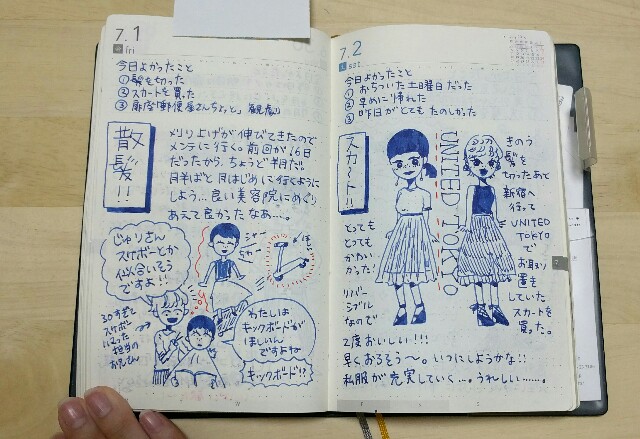 7.1
fri
今日よかったこと
①髪を切った
②スカートを買った
散髪!!
メリり上げが伸びてきたので
メンテに行く。前回が16日
だったから、ちょうど半月だ。
月半ばと月はじめに行くように
しよう…良い美容院にめぐり
あえて良かったなあ…。
じゅりさん
スケボーとか
似合いそう
ですよ!!
30すぎて
スケボー
にハマった
担当の
お兄さん
シャー
わたしは
キックボードが
ほしいん
ですよねー
キックボード!?
7.2
sat
今日よかったこと
①おちついた土曜日だった
②早めに帰れた
③昨日がとてもたのしかった
スカート!!
UNITED TOKYO
きのう
髪を
切ったあと
新宿へ
行って
UNITED
TOKYO
で
お取り
置き
していた
スカートを
買った。
とっても
とっても
かわい
かった!
リバー
シブル
なので
2度おいしい!!!
早くおろそう〜。いつにしようかな!!
私服が充実していく…。うれしい……。
7